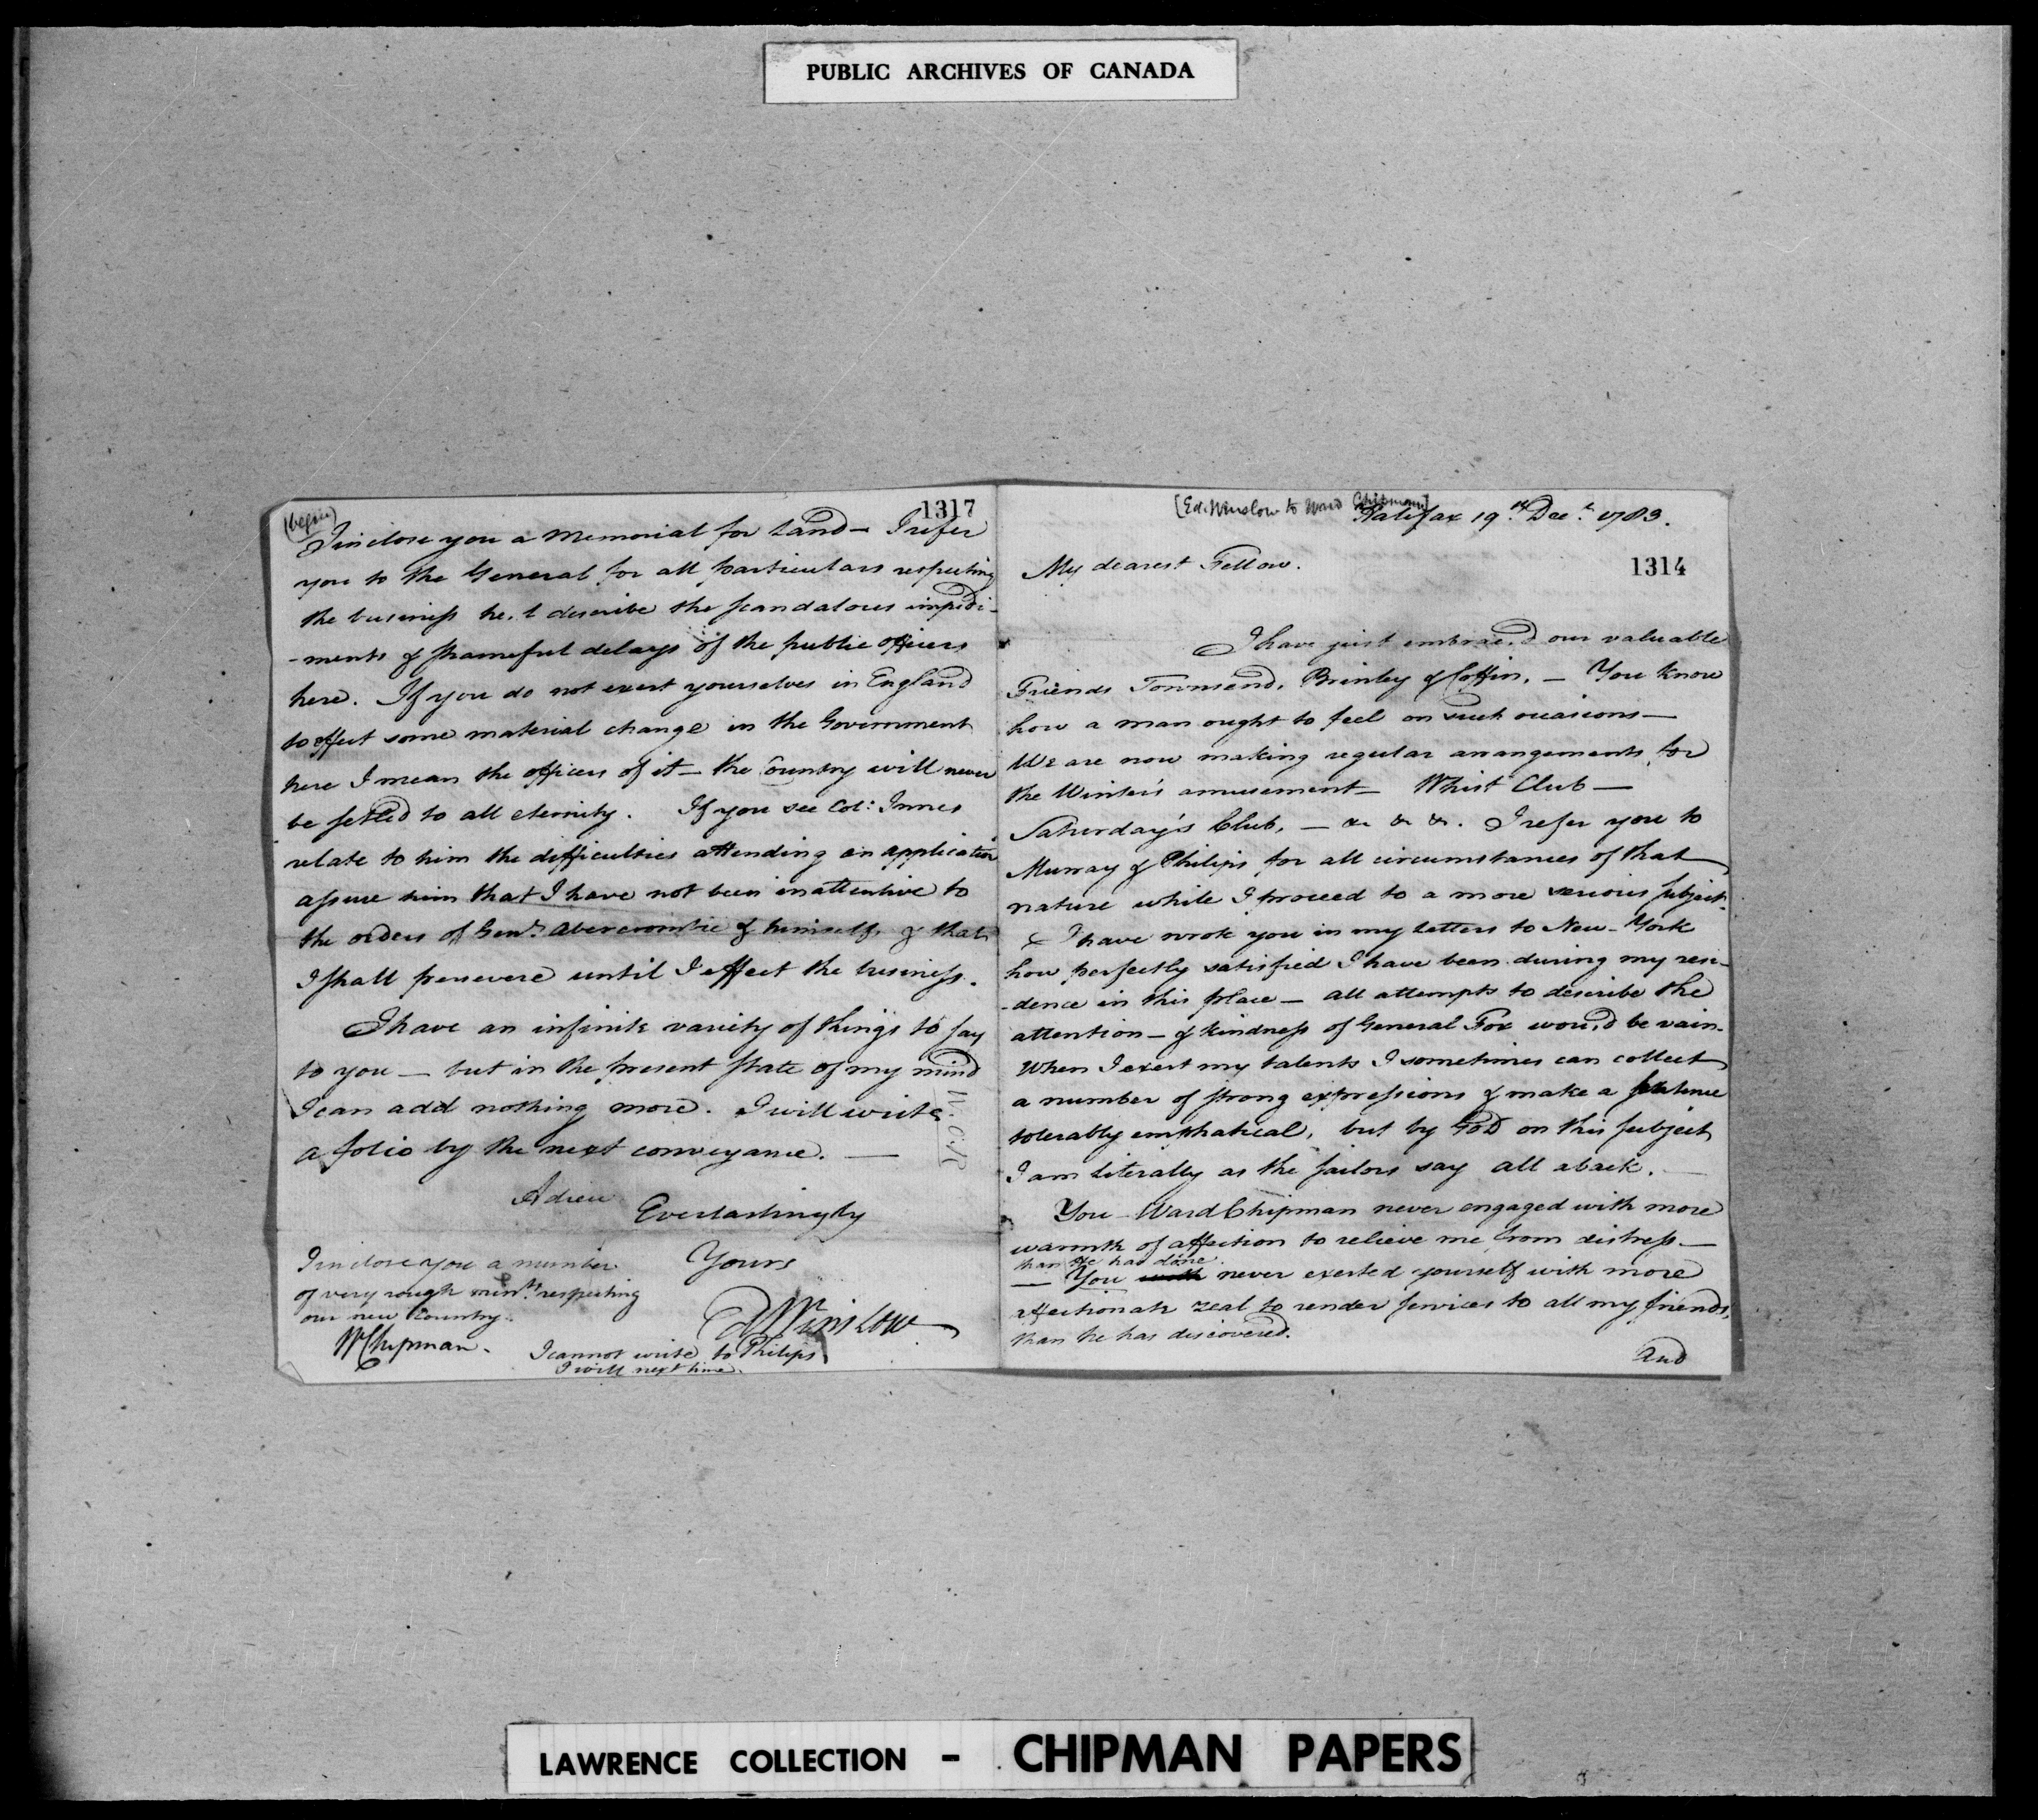 PUBLIC ARCHIVES OF CANADA
1317
(begin)
I inclose you a Memorial for Land — I refer
you to the General for all particulars respecting
the business he'l describe the scandalous impedi-
-ments & shameful delays of the public officers
here. If you do not exert yourselves in England
to effect some material change in the Government
here I mean the officers of it — the Country will never
be settled to all eternity. If you see Col: Innes
relate to him the difficulties attending an application
assure him that I have not been inattentive to
the orders of Genl. Abercrombie & himself, & that
I shall persevere until I effect the business.
I have an infinite variety of things to say
to you — but in the present state of my mind
I can add nothing more. I will write
a folio by the next conveyance. —
Adieu
Everlastingly
Yours
EdWinslow
I inclose you a number
of very rough mints. respecting
our new Country.
W Chipman.
I cannot write to Philips
I will next time.
[Ed. Winslow to Ward Chipman]
Halifax 19th. Decr. 1783.
1314
My dearest Fellow.
I have just embrac,d our valuable
Friends Townsend, Brinley & Coffin. — You know
how a man ought to feel on such occasions —
We are now making regular arrangements for
the Winter's amusement — Whist Club —
Saturday's Club, — &c &c &c. I refer you to
Murray & Philips for all circumstances of that
nature while I proceed to a more serious subject.
I have wrote you in my letters to New-York
how perfectly satisfied I have been during my resi-
-dence in this place — all attempts to describe the
attention — & kindness of General Fox wou,d be vain.
When I exert my talents I sometimes can collect
a number of strong expressions & make a sentence
tolerably emphatical, but by God on this subject
I am literally as the sailors say all aback. —
You Ward Chipman never engaged with more
warmth of affection to relieve me from distress —
than he has done.
— You never exerted yourself with more
affectionate zeal to render services to all my friends,
than he has discovered.
And
LAWRENCE COLLECTION - CHIPMAN PAPERS